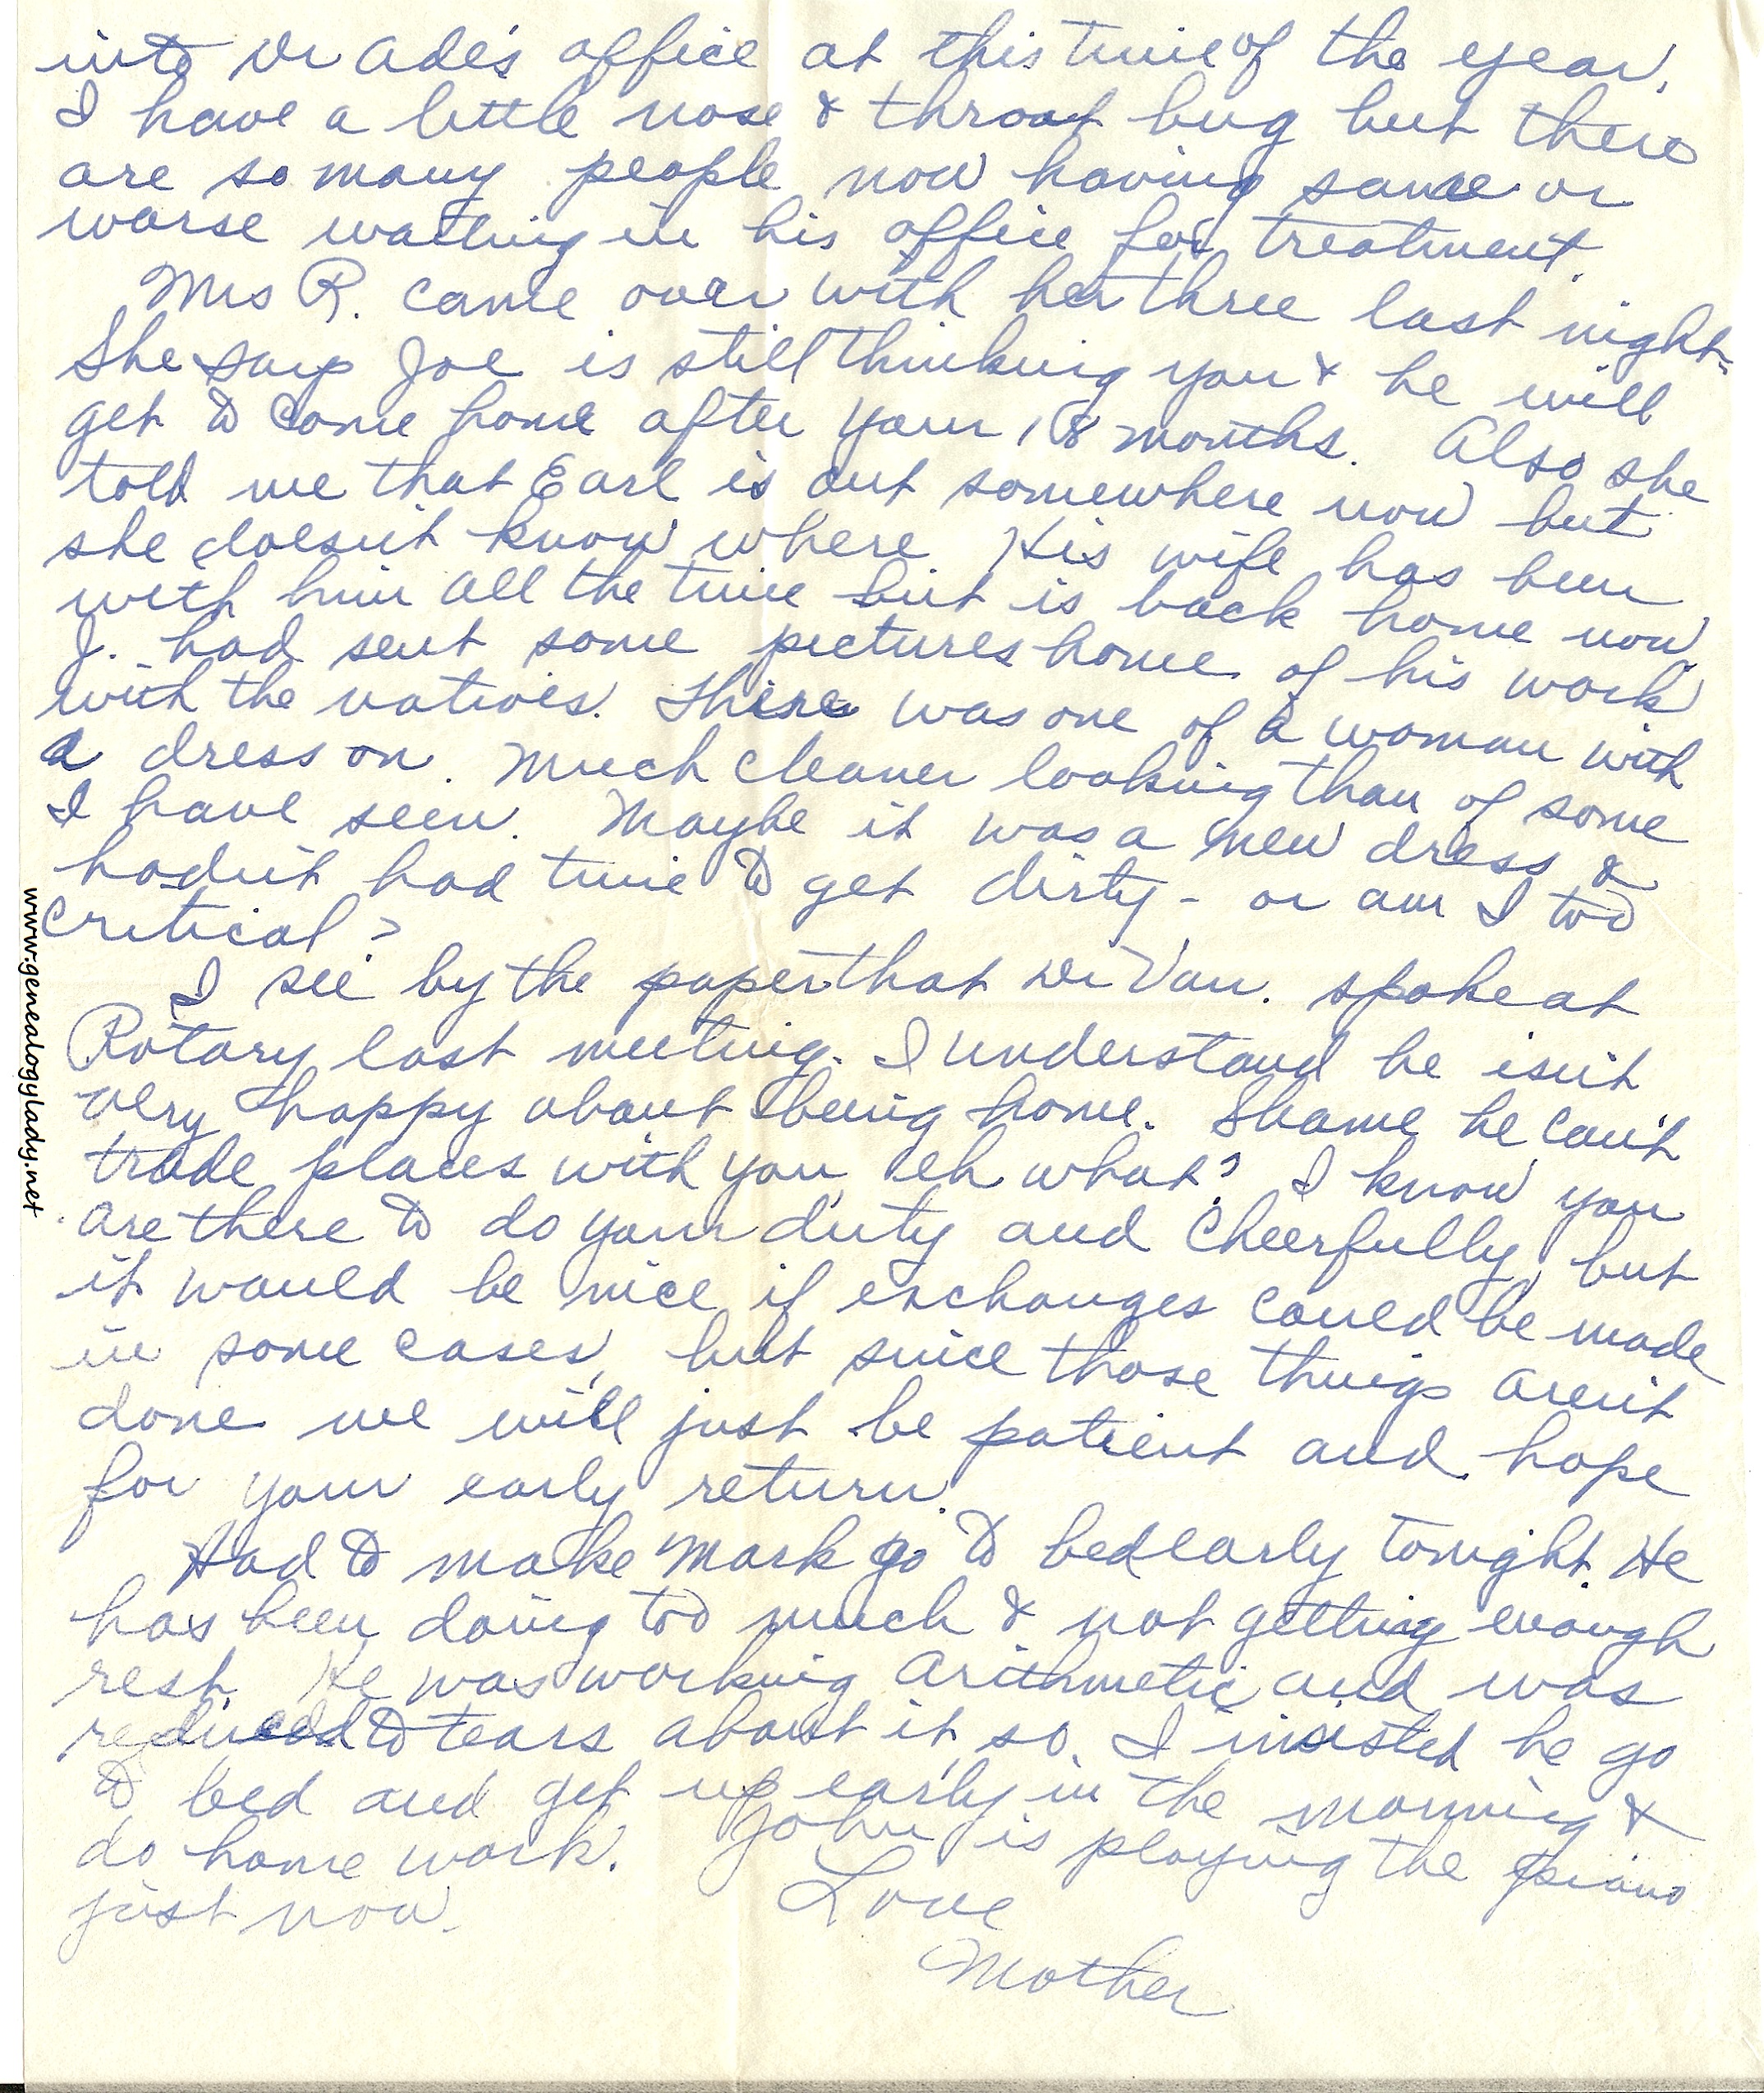 into Dr Ade's office at this time of the year.
I have a little nose & throat bug but there
are so many people now having same or
worse waiting in his office for treatment.
Mrs R. came over with her three last night-
She says Joe is still thinking you & he will
get to come home after your 18 months. Also she
told me that Earl is out somewhere now but
she doesn't know where. His wife has been
with him all the time but is back home now.
J. had sent some pictures home of his work
with the natives. There was one of a woman with
a dress on. Much cleaner looking than of some
I have seen. Maybe it was a new dress &
hadn't had time to get dirty - or am I too
critical?
I see by the paper that Dr Van. spoke at
Rotary last meeting. I understand he isn't
very happy about being home. Shame he can't
trade places with you, eh what? I know you
are there to do your duty and cheerfully, but
it would be nice if exchanges could be made
in some cases, but since those things aren't
done we will just be patient and hope
for your early return.
Had to make Mark go to bed early tonight. He
has been doing too much & not getting enough
rest. He was working arithmetic and was
reduced to tears about it, so I insisted he go
to bed and get up early in the morning &
do home work. John is playing the piano
just now.
Love
Mother
www.genealogylady.net